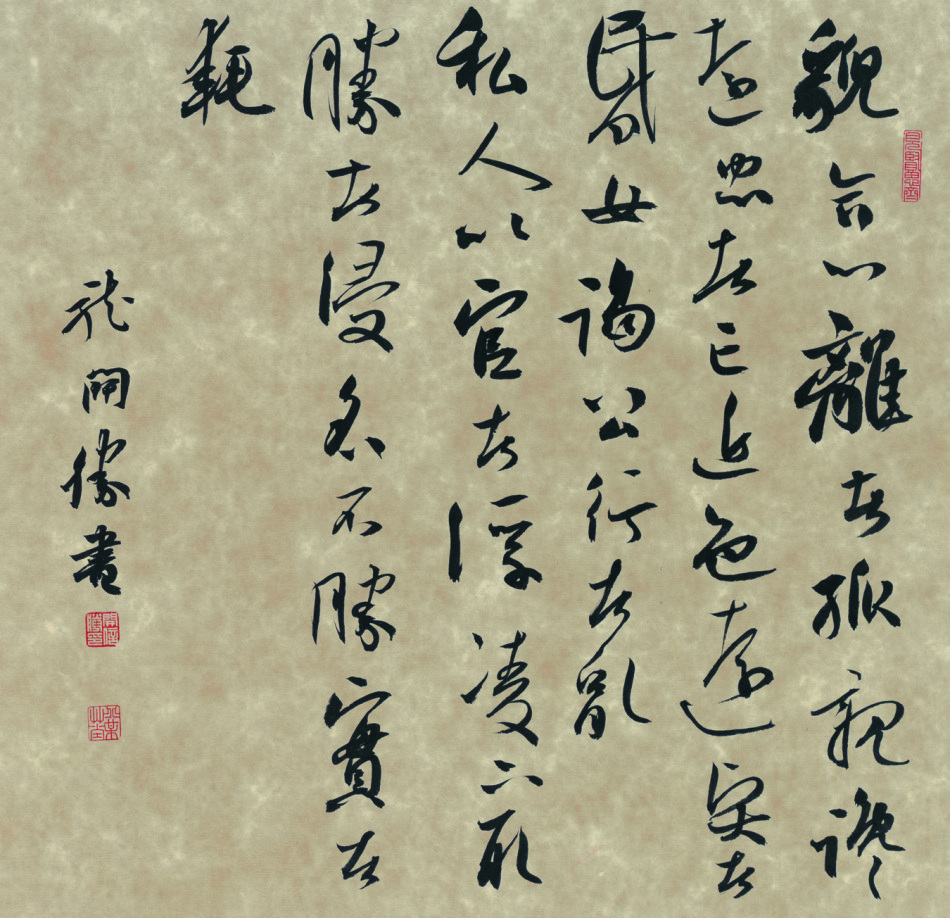 貌合心離者孤親讒
遠忠者亡近色遠賢者
昏女謁公行者亂
私人以官者浮凌下取
勝者侵名不勝實者
耗
龍開勝書